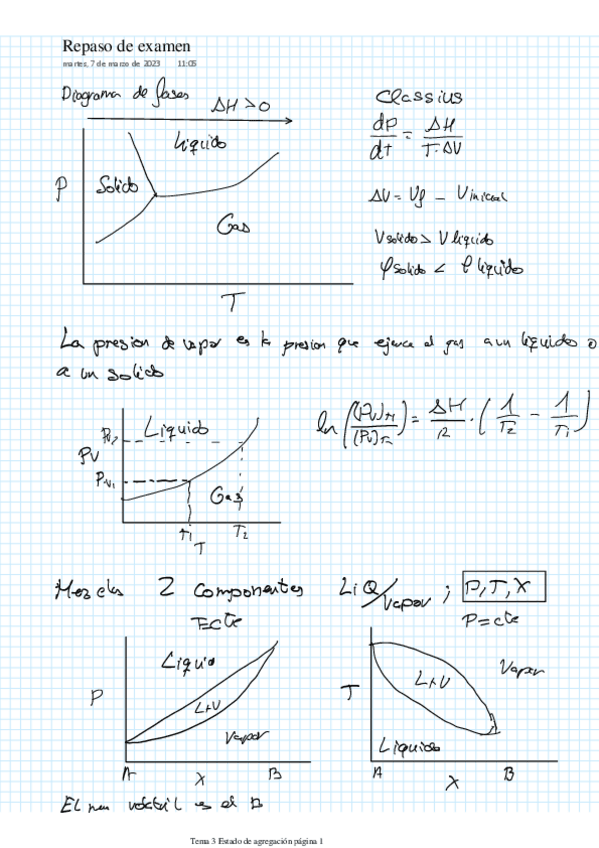 Repaso de examen
martes, 7 de marzo de 2023 11:05
Diagrama de fases
ΔH > 0
Liquido
P
Solido
Gas
T
Classius
dP/dt = ΔH/(T·ΔV)
ΔV = Vf - Vinicial
Vsolido > Vliquido
ρsolido < ρliquido
La presion de vapor es la presion que ejerce el gas a un liquido o
a un solido
Pv2
Liquido
PV
Pv1
Gas
T1
T2
T
ln((Pv)T1/(Pv)T2) = ΔH/R · (1/T2 - 1/T1)
Mezclas 2 componentes LiQ/vapor ; P,T,X
T=cte
P=cte
Liquido
P
L+V
Vapor
A X B
Vapor
T
L+V
Liquido
A X B
El mas volatil es el B
Tema 3 Estado de agregación página 1